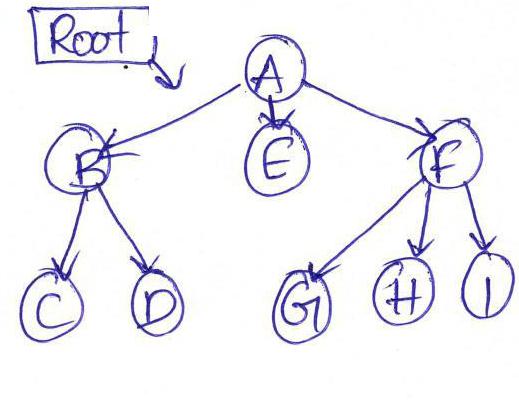 Root
A
B E F
C D G H I